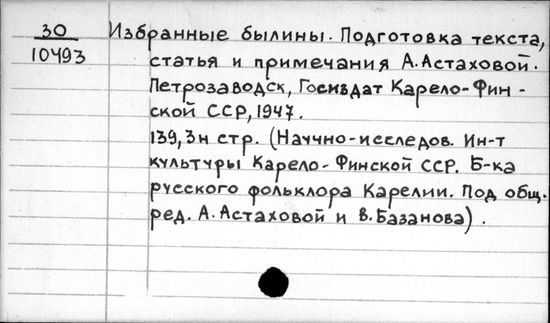 30
10493
Избранные былины. Подготовка текста,
статья и примечания А. Астаховой.
Петрозаводск, Госиздат Карело-Фин-
ской ССР, 1947.
139, 3н стр. (Научно-исследов. Ин-т
культуры Карело-Финской ССР. Б-ка
русского фольклора Карелии. Под общ.
ред. А. Астаховой и В. Базанова).